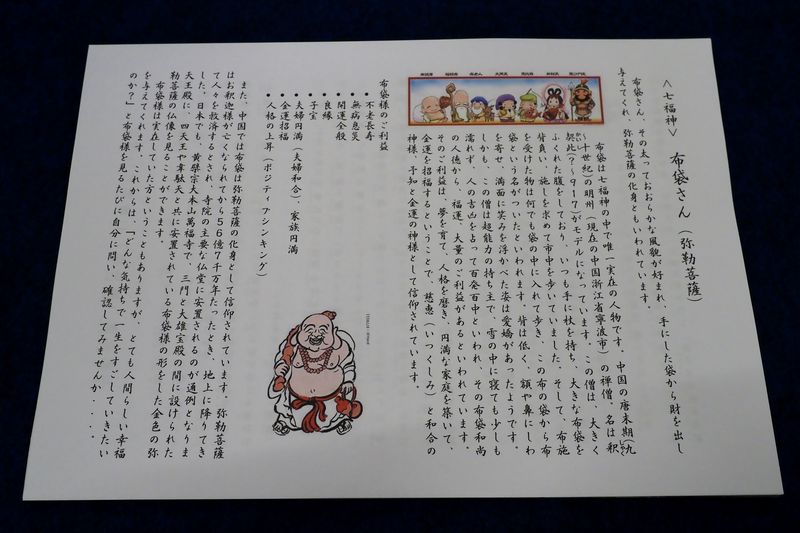 ＜七福神＞　布袋さん（弥勒菩薩）
布袋さん、その太っておおらかな風貌が好まれ、手にした袋から財を出し
与えてくれ、弥勒菩薩の化身ともいわれています。
布袋は七福神の中で唯一実在の人物です。中国の唐末期（九
～十世紀）の明州（現在の中国浙江省寧波市）の禅僧、名は釈
契此（？～917）がモデルになっています。この僧は、大きく
ふくれた腹をしており、いつも手に杖を持ち、大きな布袋を
背負い、施しを求めて市中を歩いていました。そして、布施
を受けた物は何でも袋の中に入れて歩き、この布の袋から布
袋という名がついたといわれます。背は低く、額や鼻にしわ
を寄せ、満面に笑みを浮かべた姿は愛嬌があったようです。
しかも、この僧は超能力の持ち主で、雪の中に寝ても少しも
濡れず、人の吉凶を占って百発百中といわれ、その布袋和尚
の人徳から、福運、大量のご利益があるといわれています。
そのご利益は、夢を育て、人格を磨き、円満な家庭を築いて、
金運を招福するということで、慈恵（いつくしみ）と和合の
神様、予知と金運の神様として信仰されています。
布袋様のご利益
● 不老長寿
● 無病息災
● 開運全般
● 良縁
● 子宝
● 夫婦円満（夫婦和合）、家族円満
● 金運招福
● 人格の上昇（ポジティブシンキング）
また、中国では布袋は弥勒菩薩の化身として信仰されています。弥勒菩薩
はお釈迦様が亡くなられてから56億7千万年たったとき、地上に降りてき
て人々を救済するとされ、寺院の主要な仏堂に安置されるのが通例となりま
した。日本でも、黄檗宗大本山萬福寺で、三門と大雄宝殿の間に設けられた
天王殿に、四天王や韋駄天と共に安置されている布袋様の形をした金色の弥
勒菩薩の仏像を見ることができます。
布袋様は実在していた方ということもありますが、とても人間らしい幸福
を与えてくれます。これからは、「どんな気持ちで一生をすごしていきたい
のか？」と布袋様を見るたびに自分に問い、確認してみませんか・・・・。